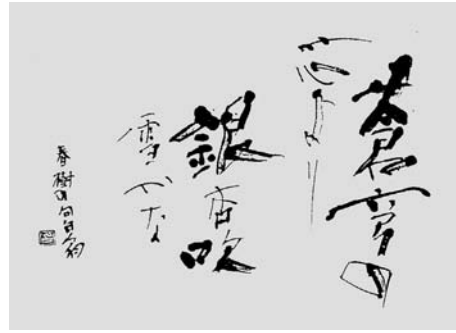 蒼穹の
芯より
銀杏吹
雪かな
春樹の句